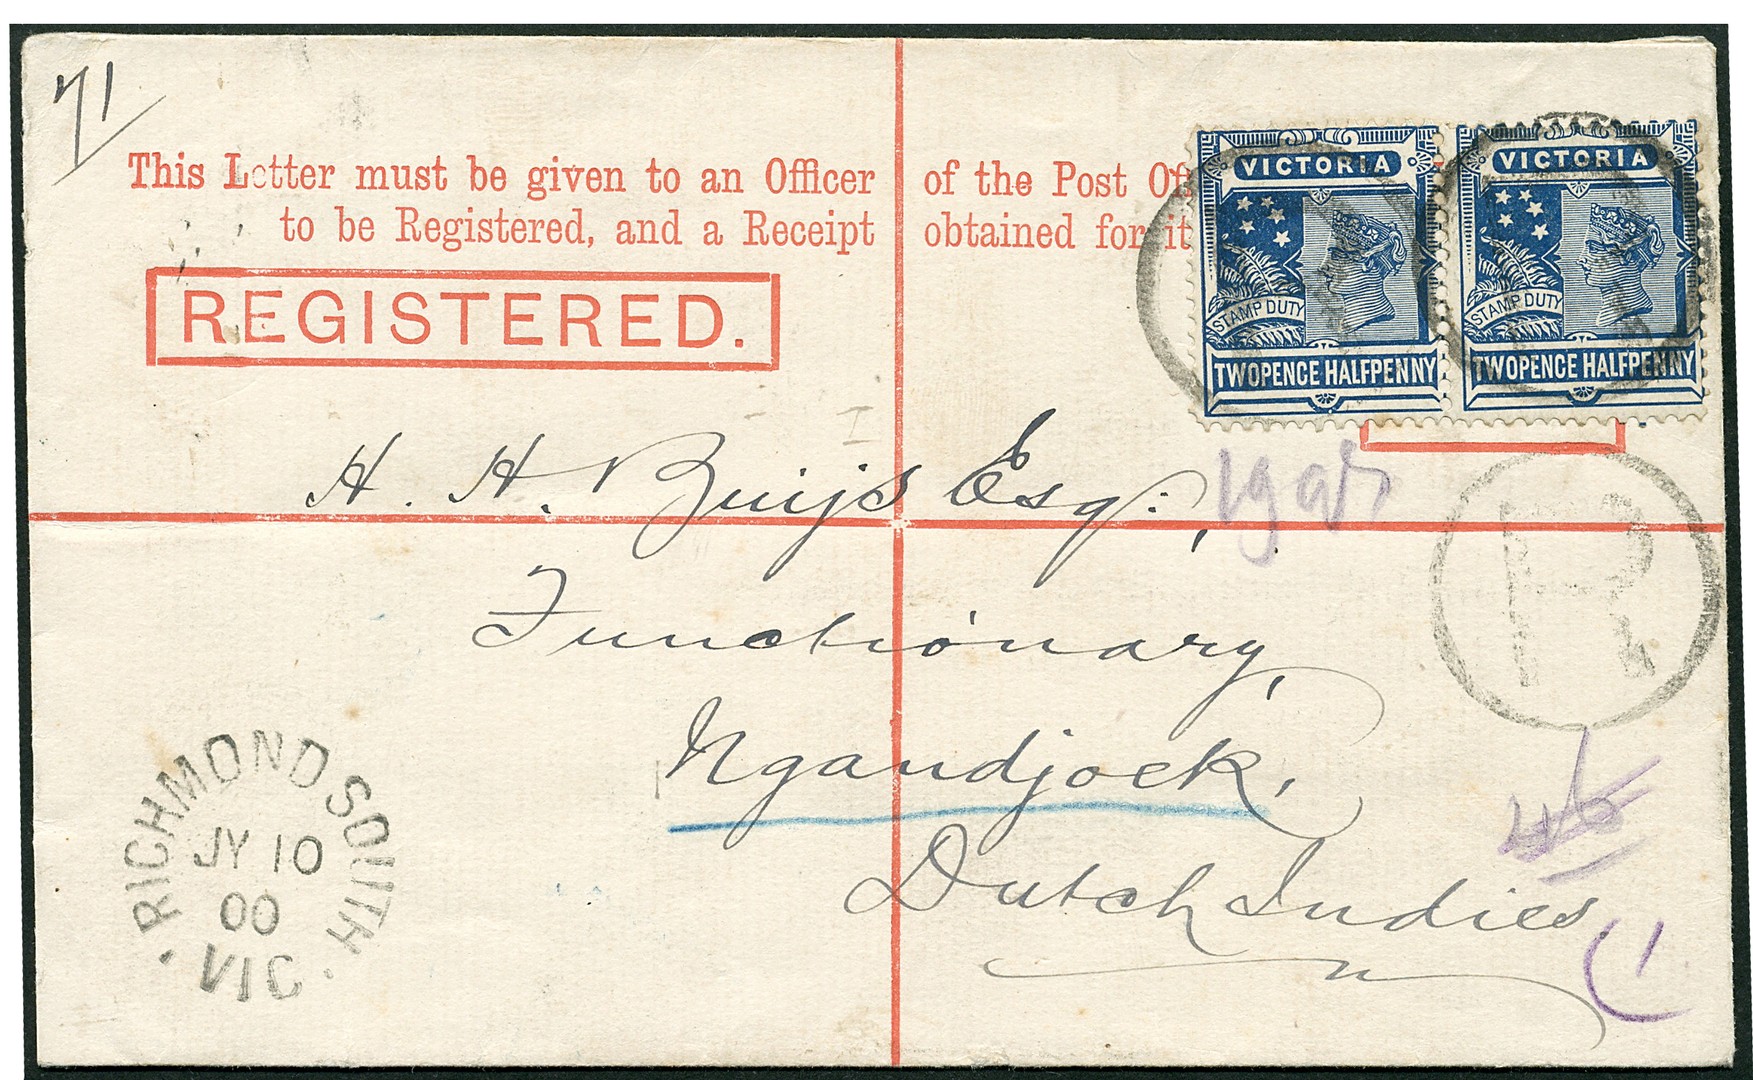 71
This Letter must be given to an Officer of the Post
to be Registered, and a Receipt obtained for it
REGISTERED.
VICTORIA
STAMP DUTY
TWOPENCE HALFPENNY
VICTORIA
STAMP DUTY
TWOPENCE HALFPENNY
H. H. Buijs Esq:,
Functionary,
Ngandjoek,
Dutch Indies
R
RICHMOND SOUTH
JY 10
00
VIC